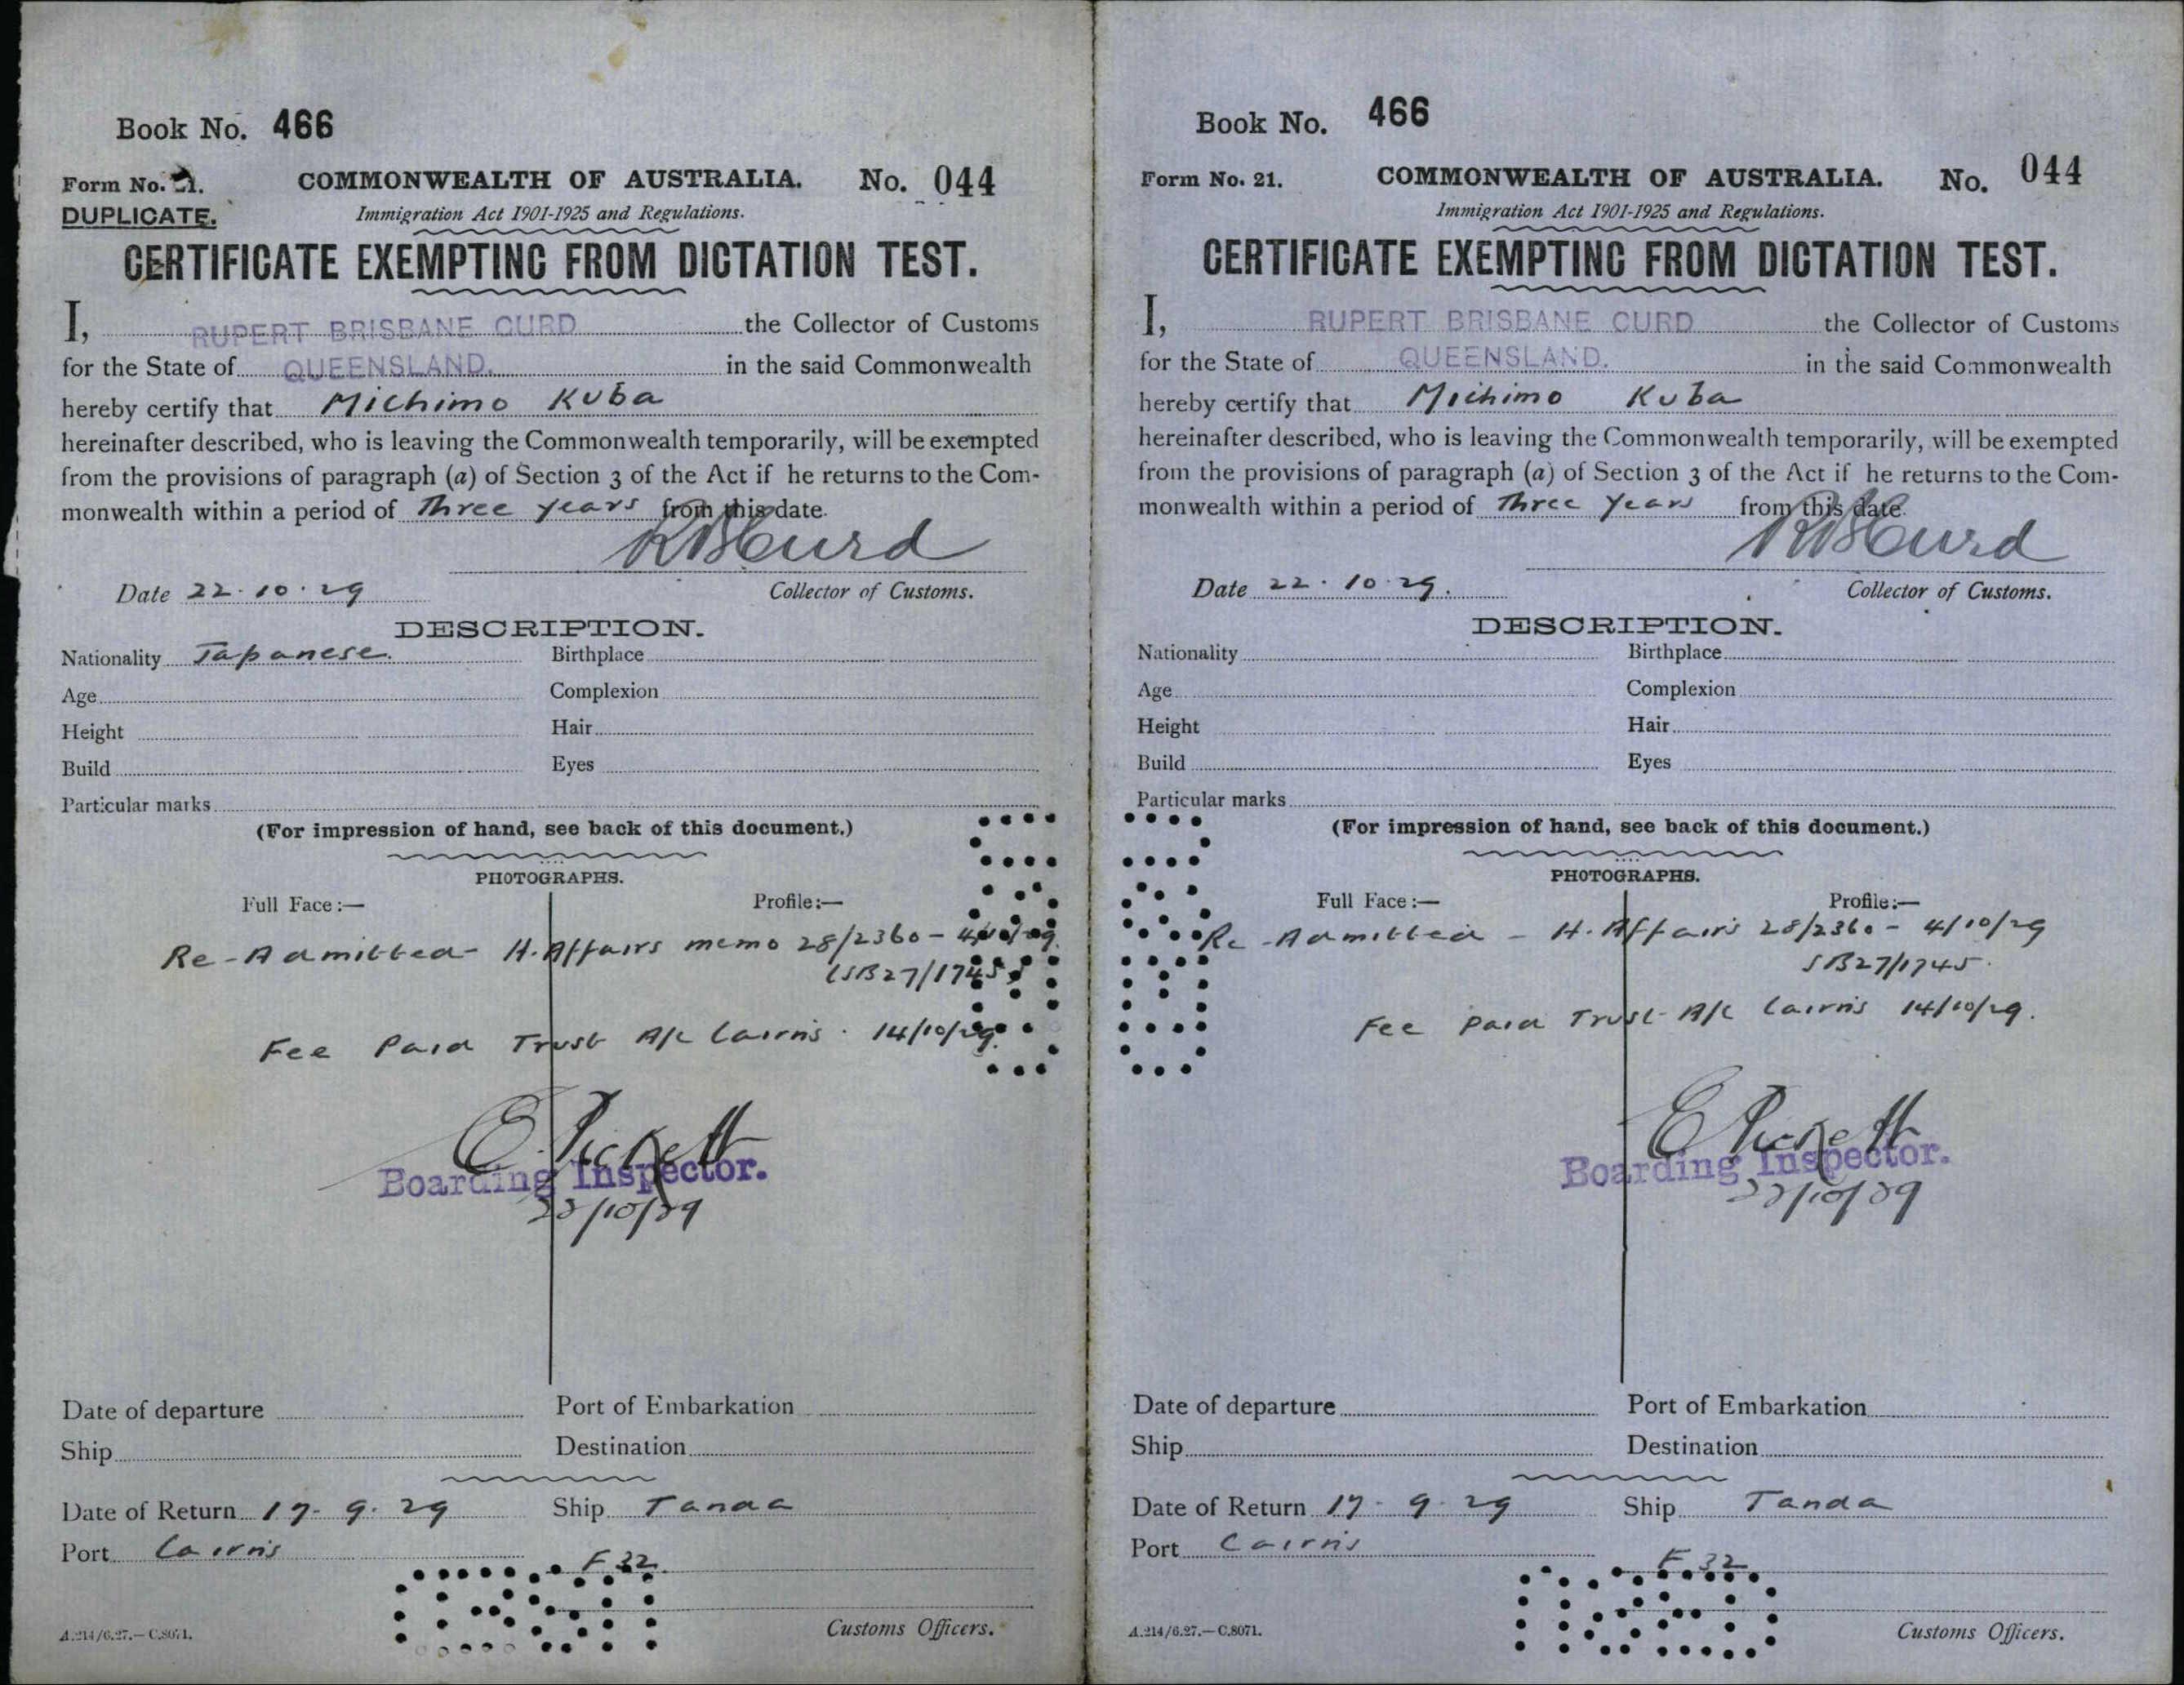 Book No. 466
Form No. 21. COMMONWEALTH OF AUSTRALIA. No. 044
DUPLICATE. Immigration Act 1901-1925 and Regulations.
CERTIFICATE EXEMPTING FROM DICTATION TEST.
I, RUPERT BRISBANE CURD the Collector of Customs
for the State of QUEENSLAND. in the said Commonwealth
hereby certify that Michimo Kuba
hereinafter described, who is leaving the Commonwealth temporarily, will be exempted
from the provisions of paragraph (a) of Section 3 of the Act if he returns to the Com-
monwealth within a period of Three years from this date.
R B Curd
Date 22.10.29 Collector of Customs.
DESCRIPTION.
Nationality Japanese. Birthplace
Age Complexion
Height Hair
Build Eyes
Particular marks
(For impression of hand, see back of this document.)
PHOTOGRAPHS.
Full Face:— Profile:—
Re-Admitted - H. Affairs memo 28/2360 - 4/10/29.
(SB27/1745)
Fee Paid Trust A/c Cairns. 14/10/29.
E. Pickett
Boarding Inspector.
22/10/29
Date of departure Port of Embarkation
Ship Destination
Date of Return 17-9.29 Ship Tanda
Port Cairns
F 32.
A.214/6.27.—C.8071. Customs Officers.
Book No. 466
Form No. 21. COMMONWEALTH OF AUSTRALIA. No. 044
Immigration Act 1901-1925 and Regulations.
CERTIFICATE EXEMPTING FROM DICTATION TEST.
I, RUPERT BRISBANE CURD the Collector of Customs
for the State of QUEENSLAND. in the said Commonwealth
hereby certify that Michimo Kuba
hereinafter described, who is leaving the Commonwealth temporarily, will be exempted
from the provisions of paragraph (a) of Section 3 of the Act if he returns to the Com-
monwealth within a period of Three Years from this date.
R B Curd
Date 22.10.29. Collector of Customs.
DESCRIPTION.
Nationality Birthplace
Age Complexion
Height Hair
Build Eyes
Particular marks
(For impression of hand, see back of this document.)
PHOTOGRAPHS.
Full Face:— Profile:—
Re-Admitted - H. Affairs 28/2360 - 4/10/29
SB27/1745.
Fee Paid Trust A/c Cairns 14/10/29.
E Pickett
Boarding Inspector.
22/10/29
Date of departure Port of Embarkation
Ship Destination
Date of Return 17-9-29 Ship Tanda
Port Cairns
F 32
A.214/6.27.—C.8071. Customs Officers.